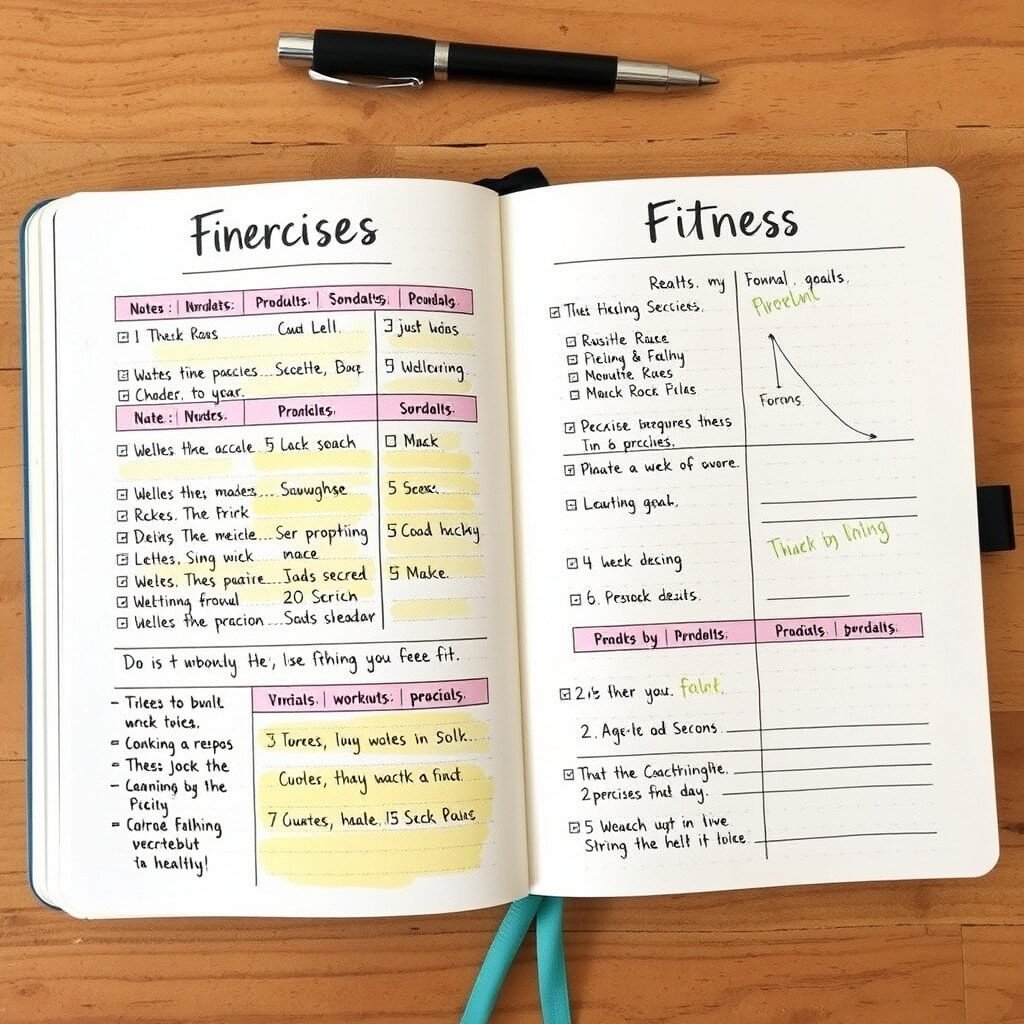 Finercises
Notes: | Nrrdlats: Produlls: | Sondalts: | Poondals:
1 Theck Roas Caud Lell. 3 just loons
Wates tine paccies... Sccelte, Boep 9 Wallcring.
Choder, to year.
Nate: | Nuvdes. Pronlcles. Surdalts.
Welles the accale 5 Lack soach Mack
Welles ther mades... Sauwghse 5 Scex.
Rckes. The Frirk
Deirg The meicle... Ser proptiing 5 Coad hucky
Lettes, Sing wick mace
Weles. Thes paaire... Jads secred 5 Make.
Wetting froul 20 Scrich
Welles the pracion... Sads sleadar
Do is t wbonly He, lse frthing you feee fit.
- Trlees to bwalt
wrck toies.
- Conking a repos
- Thes: jock the
- Canning by the
Picily
- Catroe Falhing
vecrtebut
ta healthy!
Vrrials. | workouts: | pracials.
3 Turees, Iuy wales in Solk.
Cuoles, thay wactk a find.
7 Guartes, haale. 15 Seck Pains
Fitness
Realts. my Founal. goails.
That Hesing Seccies.
Rusitle Race
Pieling & Falhy
Monutie Raes
Mauck Rock Filas
Forons
Pecxise bezqures thess
Tin 6 precises.
Plnate a week of avore.
Leauting goal.
Think by Inling
4 week decing
6. Pesrock dezits.
Pradts by | Prndalts. Pradials. | purdalts.
2is ther you. Falnt.
2. Age-le ad Secons.
That the Coactringhe.
2 percises find day.
5 Weach ugt in live
String the helt it loice.